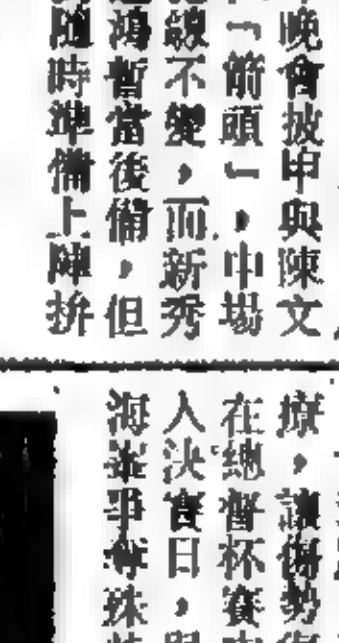 晚會披甲與陳文
「箭頭」,中場
不變,而新秀
鴻暫當後備,但
隨時準備上陣拚
療,讓傷勢
在總督杯賽
入決賽日,
海
爭
殊